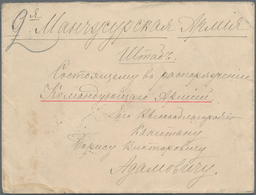 2я Манчжурская Армія
Штабъ.
Состоящему въ распоряженіи
Командующаго Арміей
Его Высокоблагородію
Капитану
Борису Викторовичу
Адамовичу